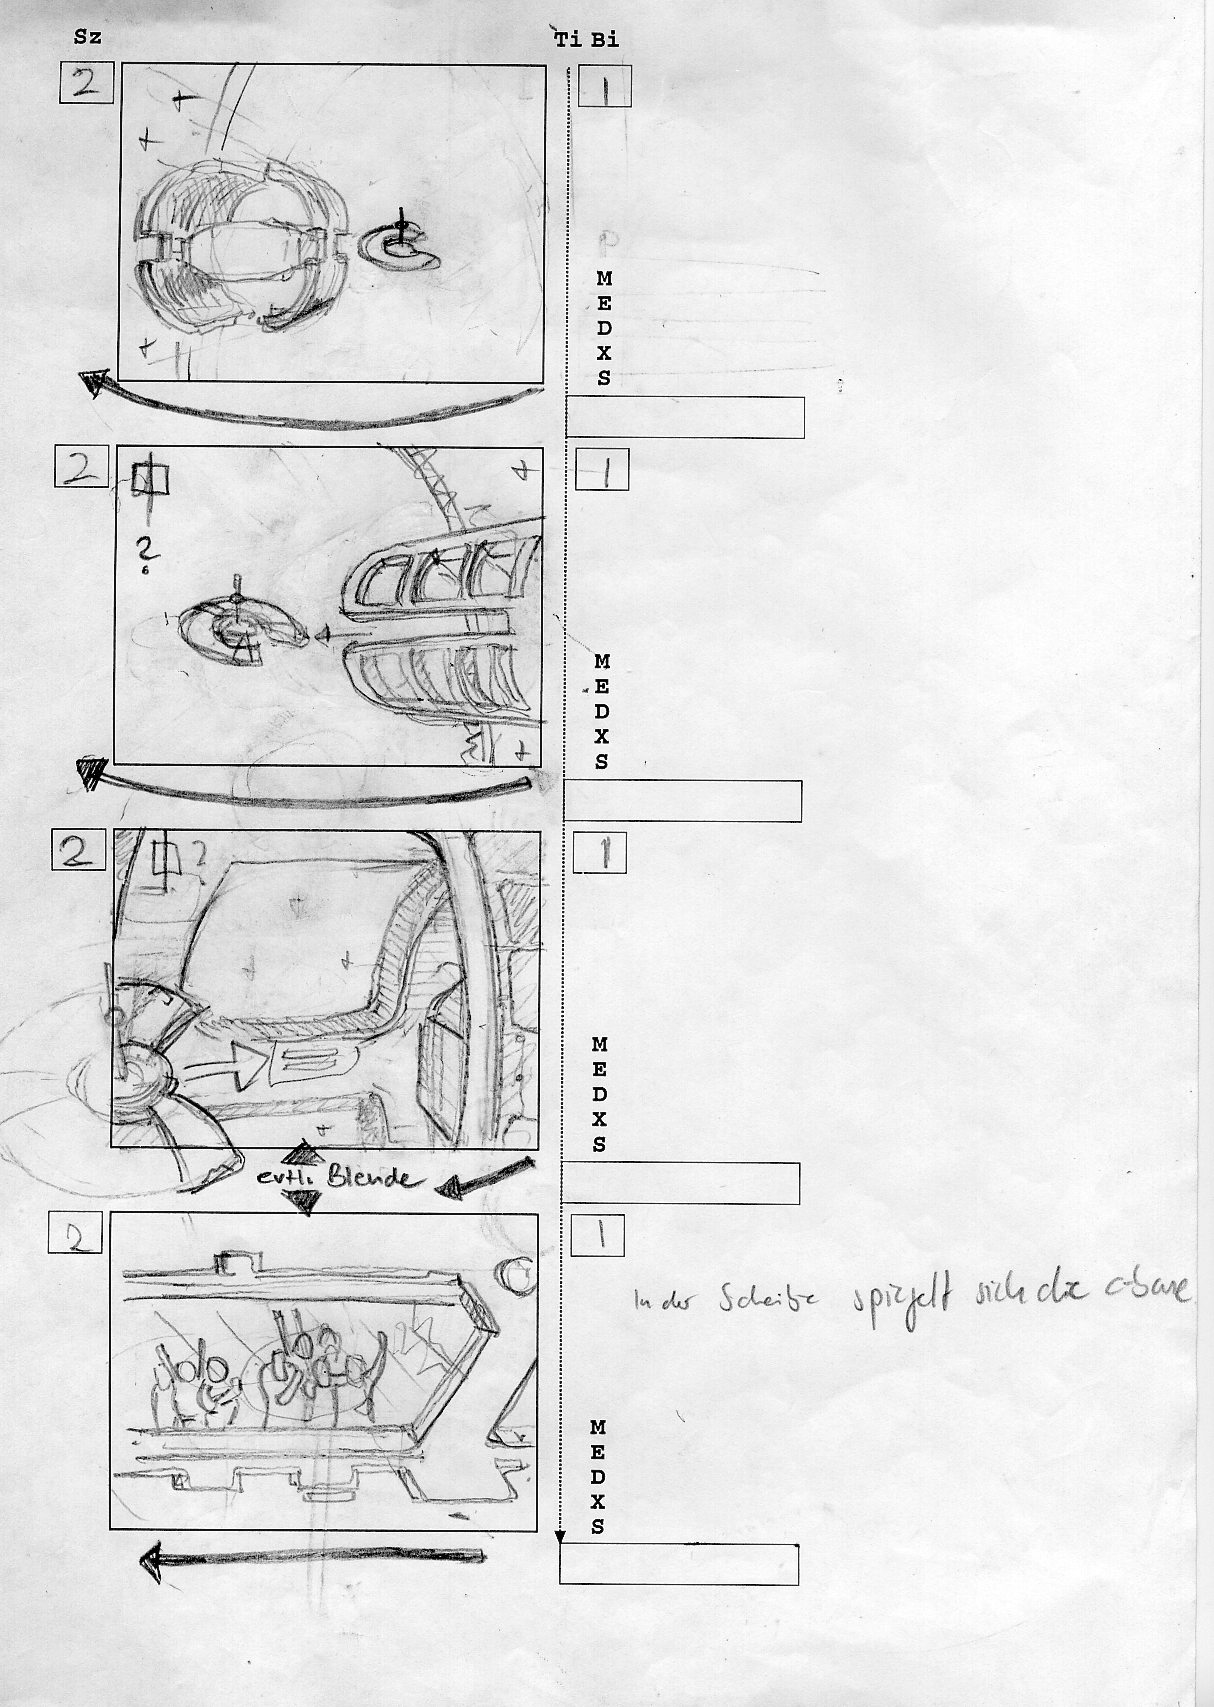 Sz Ti Bi
2 1
M
E
D
X
S
2 1
?
M
E
D
X
S
2 1
?
M
E
D
X
S
evtl. Blende
2 1
In der Scheibe spiegelt sich die
M
E
D
X
S